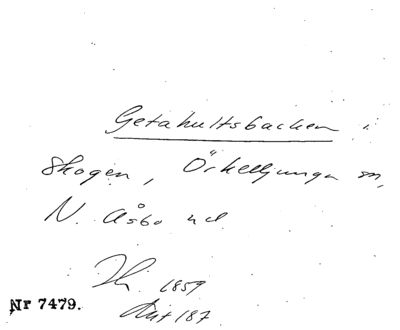 Getahultsbacken i
Skogen, Örkelljunga sn,
N. Åsbo hd.
1859
Nr 7479.
187